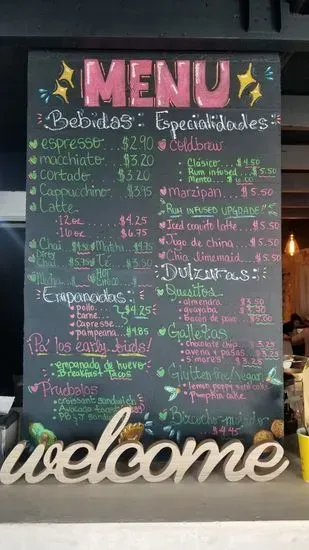 MENU
Bebidas:
espresso... $2.90
macchiato... $3.20
cortado... $3.20
Cappucchino... $3.95
Latte
12 oz... $4.25
16 oz... $6.75
Chai
Té
Hot
Empanadas:
pollo
carne
$4.25
Capresse
pampeana... $4.85
Pa' los early birds!
empanada de huevo
Breakfast Tacos
Pruébalos
croissant sandwich
Especialidades:
Coldbrew
Clásico... $4.50
Rum infused... $5.50
Menta... $6.00
Marzipán... $5.50
Rum INFUSED UPGRADE!!
Iced coquito latte... $5.50
Jugo de china... $5.50
Chia limemaid... $5.50
Dulzuras:
Quesitos
almendra $3.50
guayaba
bacon
Galletas
chocolate chip... $3.25
avena y pasas... $3.25
s'mores
Glutten free/vegan
lemon poppy seed cake
pumpkin cake
$4.45
welcome